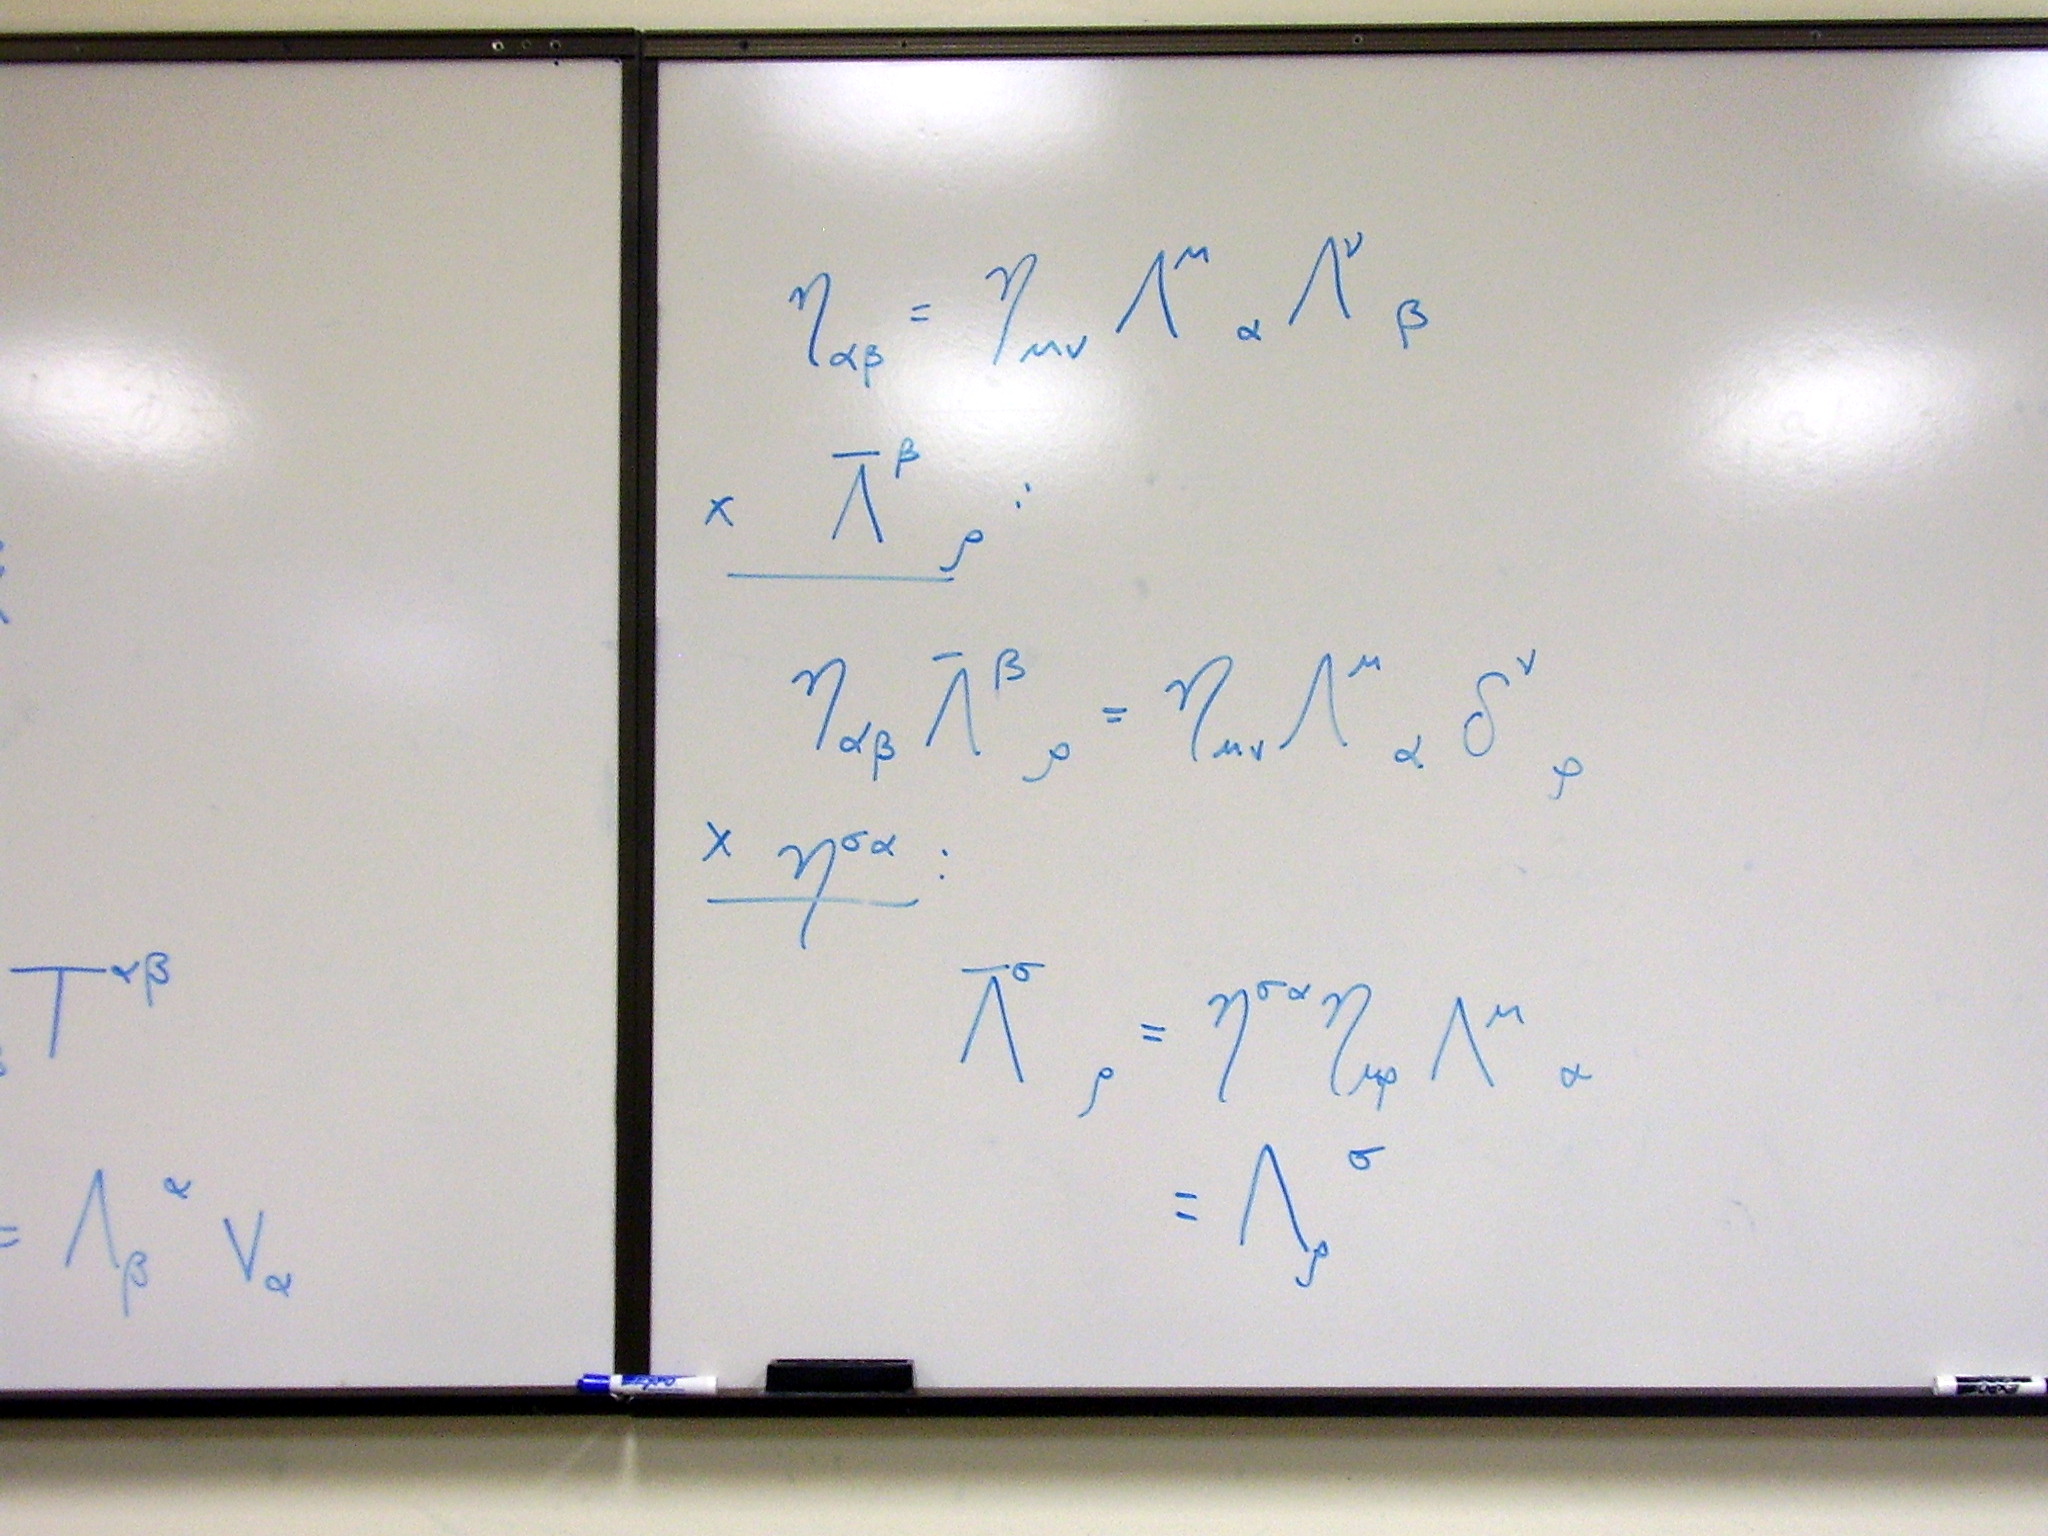 T^{αβ}
= Λ_β^α V_α
η_{αβ} = η_{μν} Λ^μ_α Λ^ν_β
x Λ̄^β_ρ :
η_{αβ} Λ̄^β_ρ = η_{μν} Λ^μ_α δ^ν_ρ
x η^{σα} :
Λ̄^σ_ρ = η^{σα} η_{μρ} Λ^μ_α
= Λ_ρ^σ